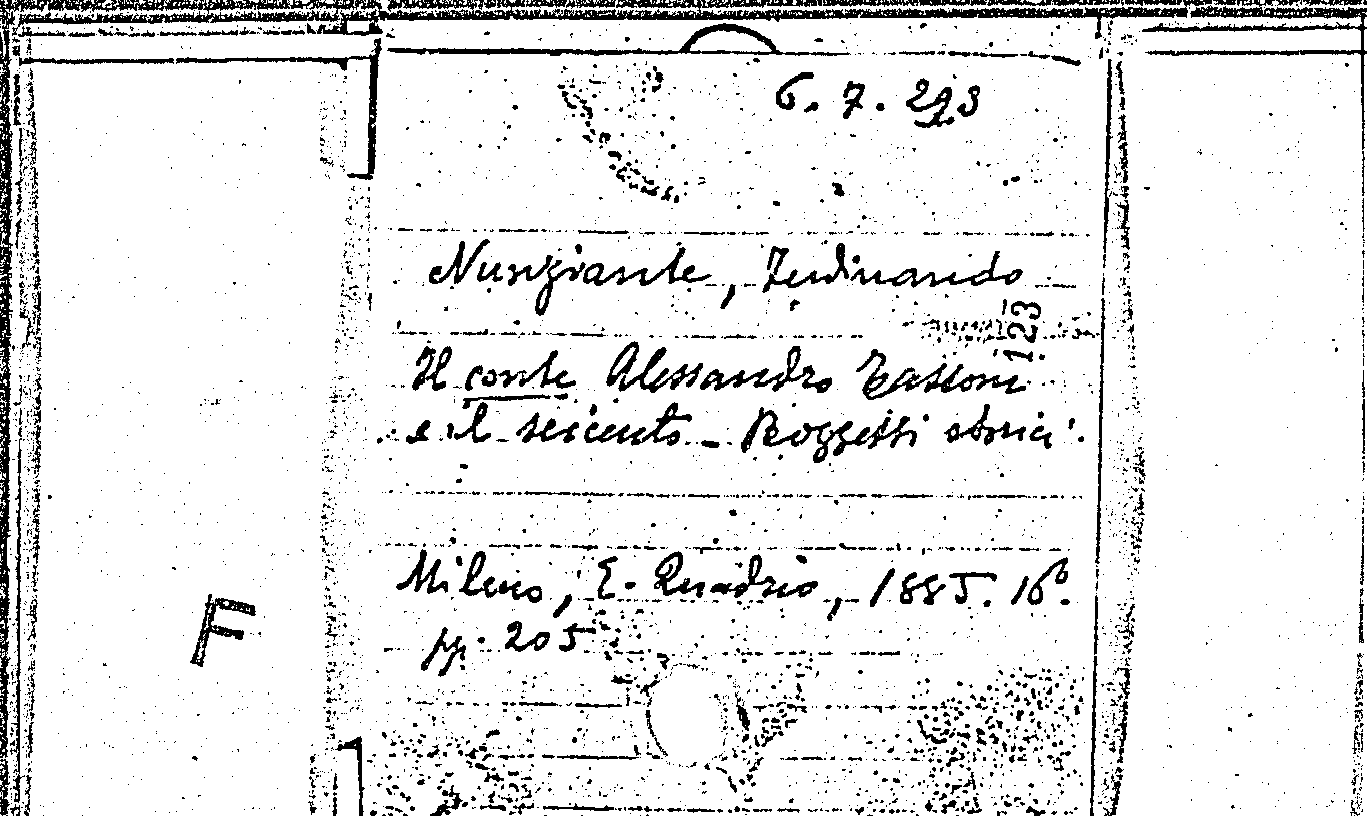 6. 7. 293
Nunziante, Ferdinando
123
Il conte Alessandro Tassoni
e il seicento - Bozzetti storici.
Milano, E. Quadrio, 1885. 16º.
pp. 205
F